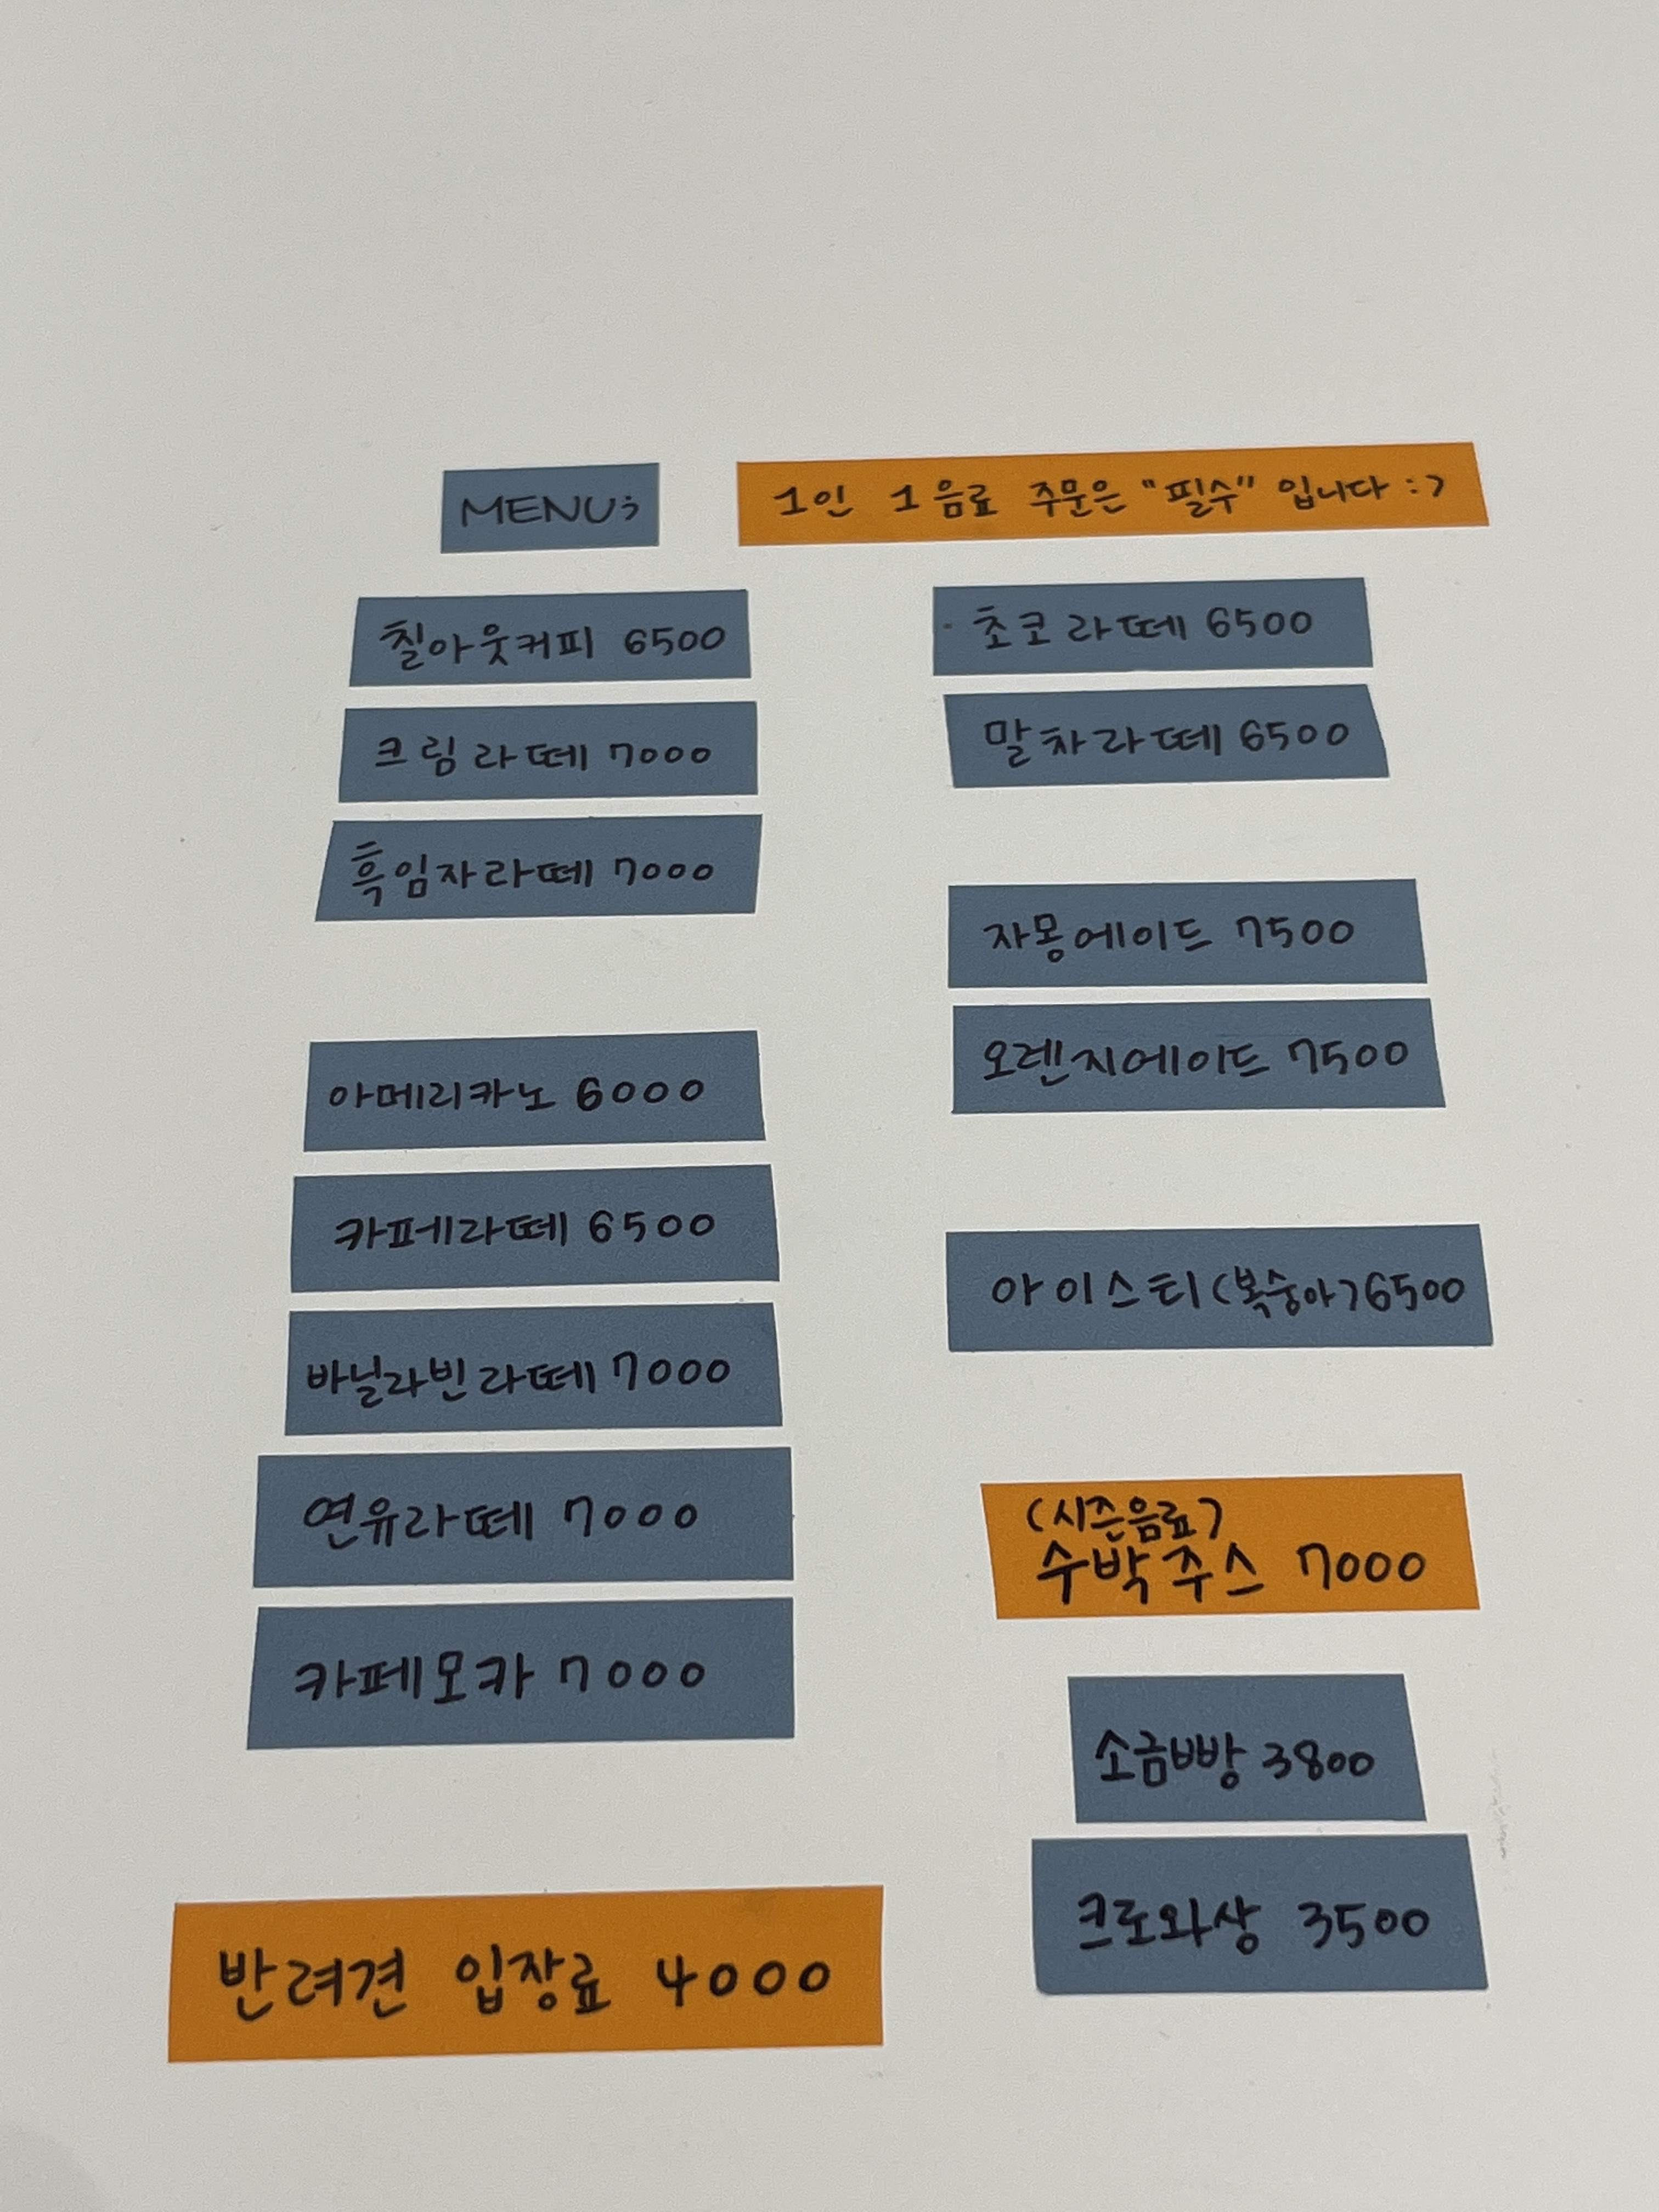 MENU:)
1인 1음료 주문은 "필수" 입니다 :)
칠아웃커피 6500
크림라떼 7000
흑임자라떼 7000
아메리카노 6000
카페라떼 6500
바닐라빈라떼 7000
연유라떼 7000
카페모카 7000
반려견 입장료 4000
초코라떼 6500
말차라떼 6500
자몽에이드 7500
오렌지에이드 7500
아이스티(복숭아)6500
(시즌음료)
수박주스 7000
소금빵 3800
크로와상 3500